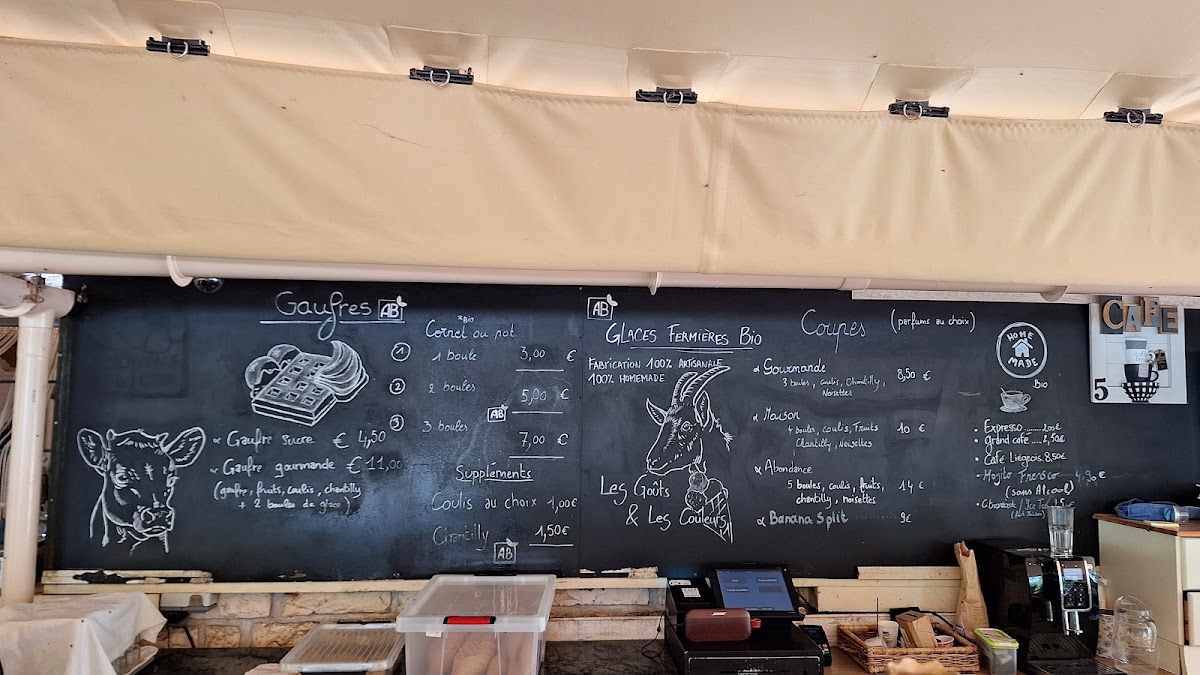 Gaufres AB
Gaufre sucre € 4,50
Gaufre gourmande € 11,00
(gaufre, fruits, coulis, chantilly
+ 2 boules de glace)
*Bio
Cornet ou pot
1 1 boule 3,00 €
2 2 boules 5,00 €
AB
3 3 boules 7,00 €
Suppléments
Coulis au choix 1,00€
Chantilly 1,50€
AB
AB
GLACES FERMIÈRES BIO
FABRICATION 100% ARTISANALE
100% HOMEMADE
LES GOÛTS
& LES COULEURS
Coupes (parfums au choix)
Gourmande 8,50 €
3 boules, coulis, Chantilly,
Noisettes
Maison 10 €
4 boules, coulis, Fruits
Chantilly, Noisettes
Abondance 14 €
5 boules, coulis, fruits,
chantilly, noisettes
Banana Split 9€
HOME
MADE
Bio
Expresso 2,00€
grand café 2,50€
Café Liégeois 8,50€
Mojito 4,90€
(sans Alcool)
CAFE
5